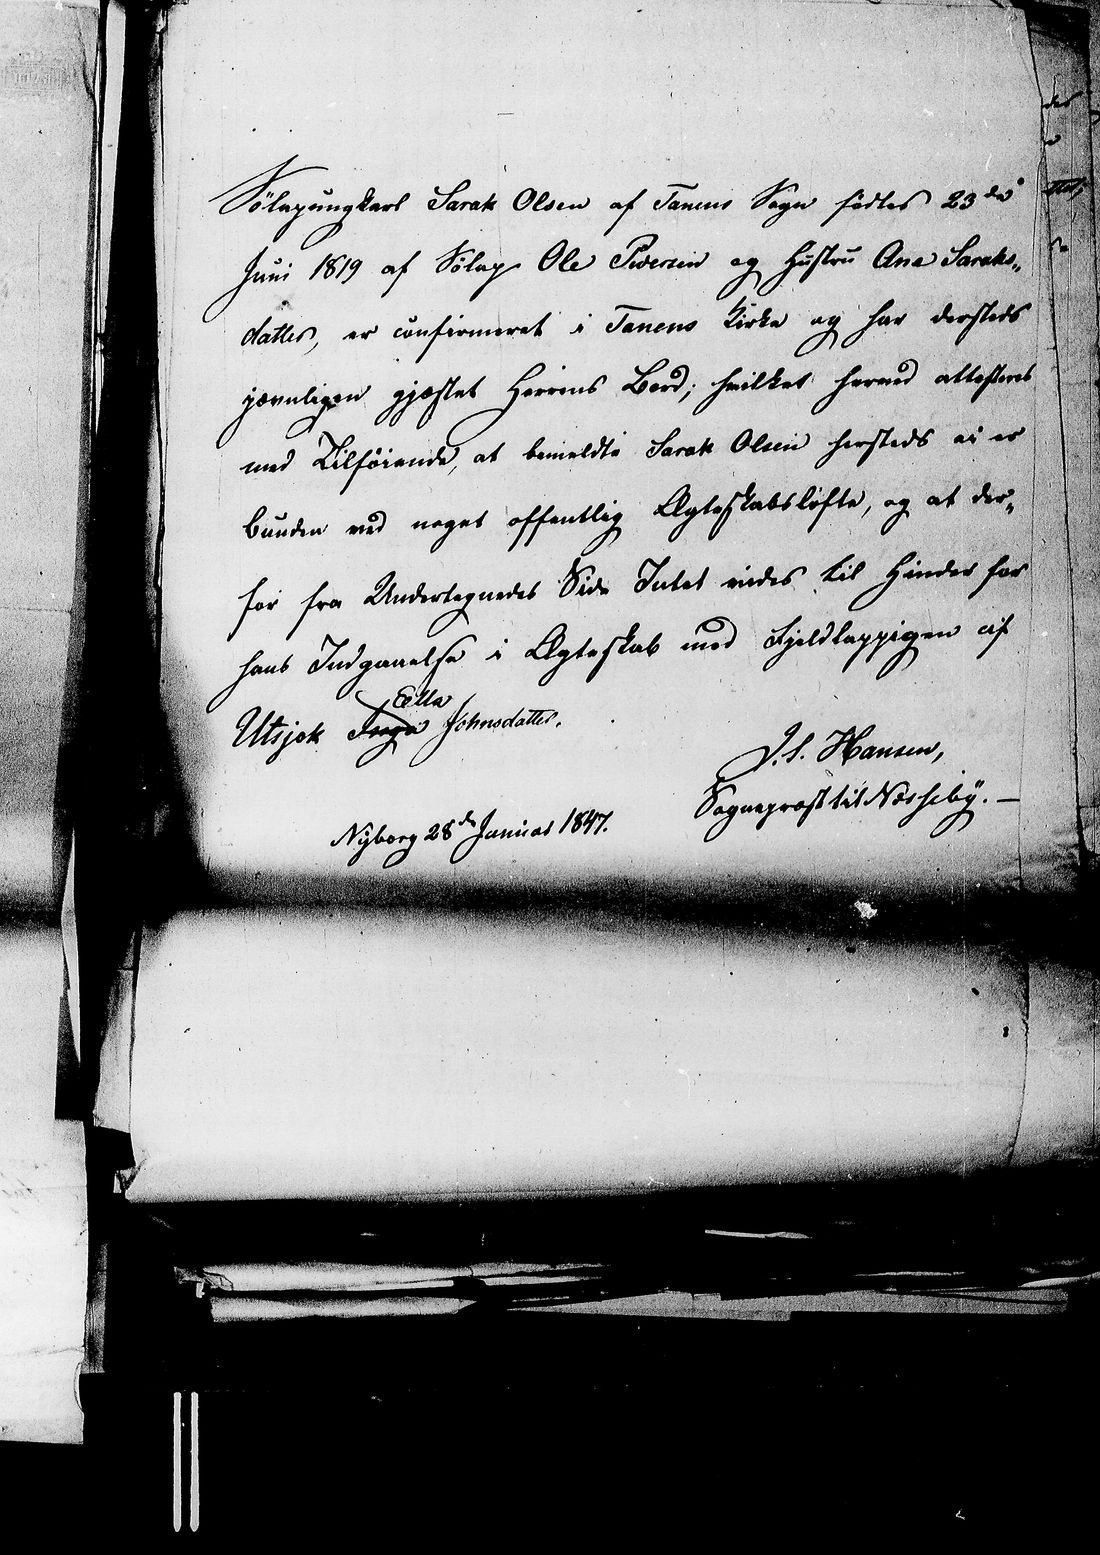 Sölapungkarl Sarak Olsen af Tanens Sogn födtes 23de
Juni 1819 af Sölap Ole Pedersen og Hustru Ane Saraks„
datter, er confirmeret i Tanens Kirke og har dersteds
jævnligen gjæstet Herrens Bord; hvilket herved attesteres
med Tilföiende, at bemeldte Sarak Olsen hersteds ei er
bunden ved noget offentlig Ægteskabslöfte, og at der„
for fra Undertegnedes Side Intet vides til Hinder for
hans Indgaaelse i Ægteskab med Fjeldlappigen af
Ella
Utsjok Johnsdatter.
J. S. Hansen,
Sognepræst til Næsseby. —
Nyborg 28de Januar 1847.